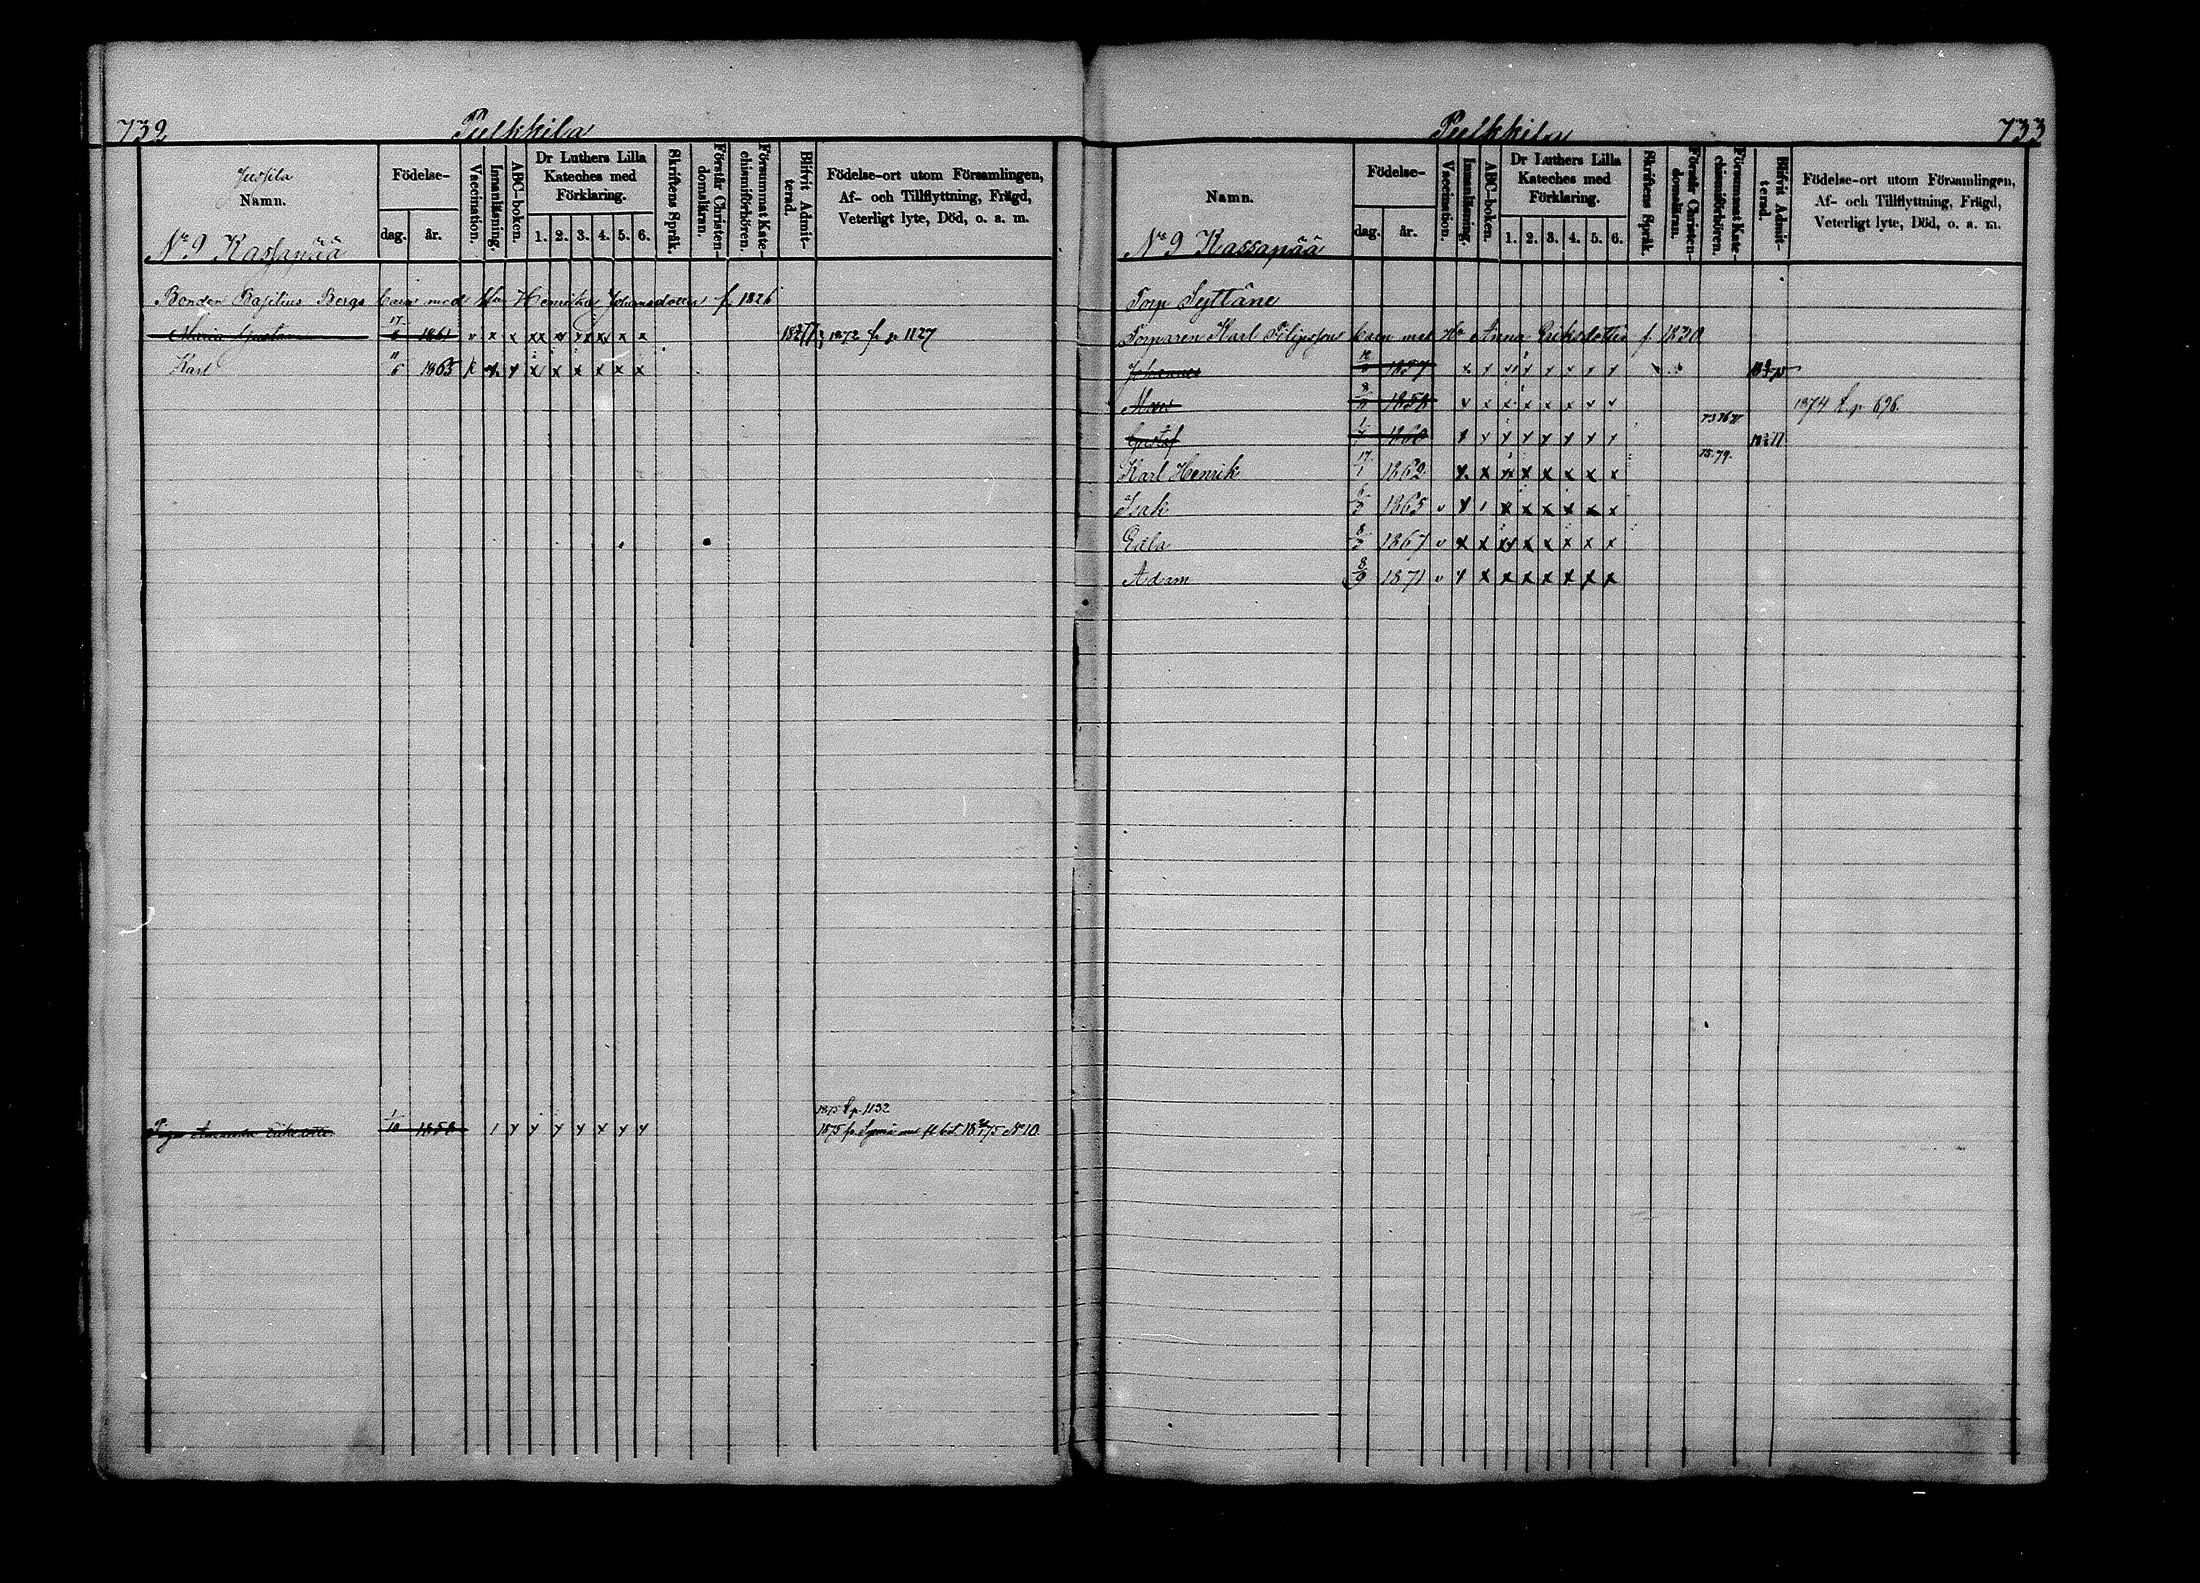 732
Pulkkila
Jussila
Namn.
Födelse-
dag. år.
Vaccination.
Innanläsning.
ABC-boken.
Dr Luthers Lilla Kateches med Förklaring.
1. 2. 3. 4. 5. 6.
Skriftens Språk.
Förstår Christen-domsläran.
Försummat Kate-chismiförhören.
Blifvit Admit-terad.
Födelse-ort utom Församlingen,
Af- och Tillflyttning, Frägd,
Veterligt lyte, Död, o. a. m.
No 9 Kassapää
Bonden Basilius Bergs barn med Hu Henrika Johansdotter f. 1826
Maria 17/6 1861 v x x xx x x x x x 1877 1872 fr p 1127
Karl 11/6 1863 k x x x x x x x x
1875 t. p. 1132
Piga Amanda Eriksdotter 1/10 1858 1 x x x x x x x 1875 fr att bet. 1875 No 10
733
Pulkkila
Namn.
Födelse-
dag. år.
Vaccination.
Innanläsning.
ABC-boken.
Dr Luthers Lilla Kateches med Förklaring.
1. 2. 3. 4. 5. 6.
Skriftens Språk.
Förstår Christen-domsläran.
Försummat Kate-chismiförhören.
Blifvit Admit-terad.
Födelse-ort utom Församlingen,
Af- och Tillflyttning, Frägd,
Veterligt lyte, Död, o. a. m.
No 9 Kassapää
Torp
Torparen Karl Filipssons barn med Hu Anna Eriksdotter f. 1830
Johannes 1857 x x x x x x x x
8/11 1858 v x x x x x v v 1874 t. p. 696.
73 76 77
Gustaf 1860 x x x x x x x x 1877
75. 79.
Karl Henrik 17/1 1862 x x x x x x x x
Isak 1865 v x 1 x x x x x x
Edla 8/3 1867 v x x x x x x x x
Adam 8/9 1871 v x x x x x x x x